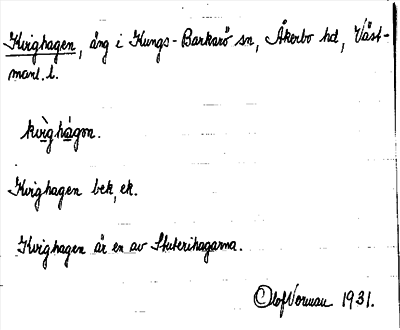 Kvighagen, äng i Kungs-Barkarö sn, Åkerbo hd, Väst-
manl. l.
kvìghágon.
Kvighagen bek, ek.
Kvighagen är en av Stuterihagarna.
Olof Norman 1931.